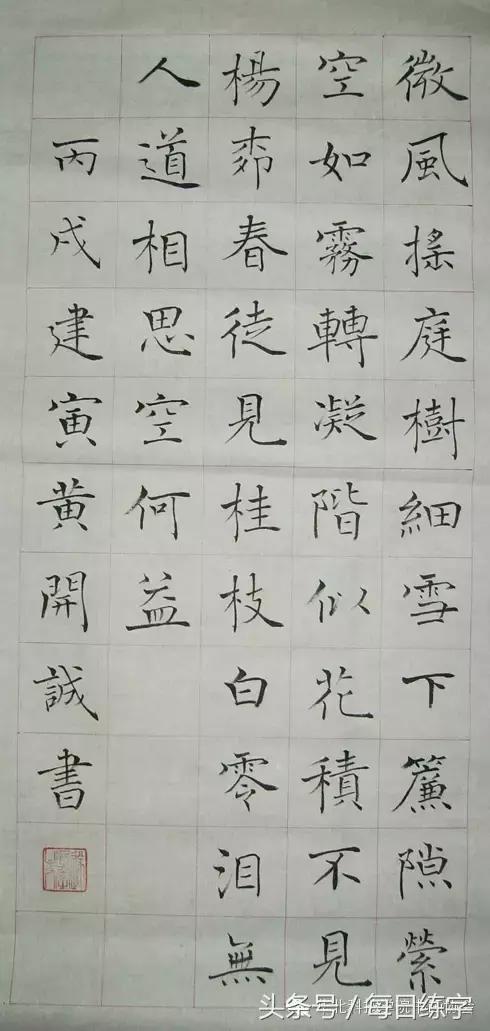 微風搖庭樹細雪下簾隙縈
空如霧轉凝階似花積不見
楊柳春徒見桂枝白零泪無
人道相思空何益
丙戌建寅黄開誠書
头条号/每日练字